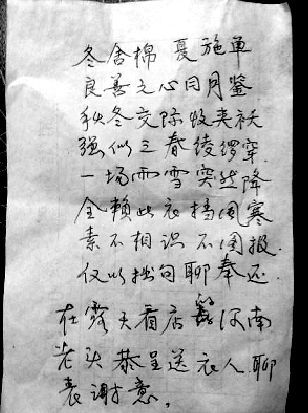 冬舍棉 夏施单
良善之心日月鉴
秋冬交际收夹袄
强似三春绫穿
一场雨雪突然降
全赖此衣挡风寒
素不相识不图报.
仅以拙句聊奉还
在露天看店 河南
老头恭呈送衣人聊
表谢意。